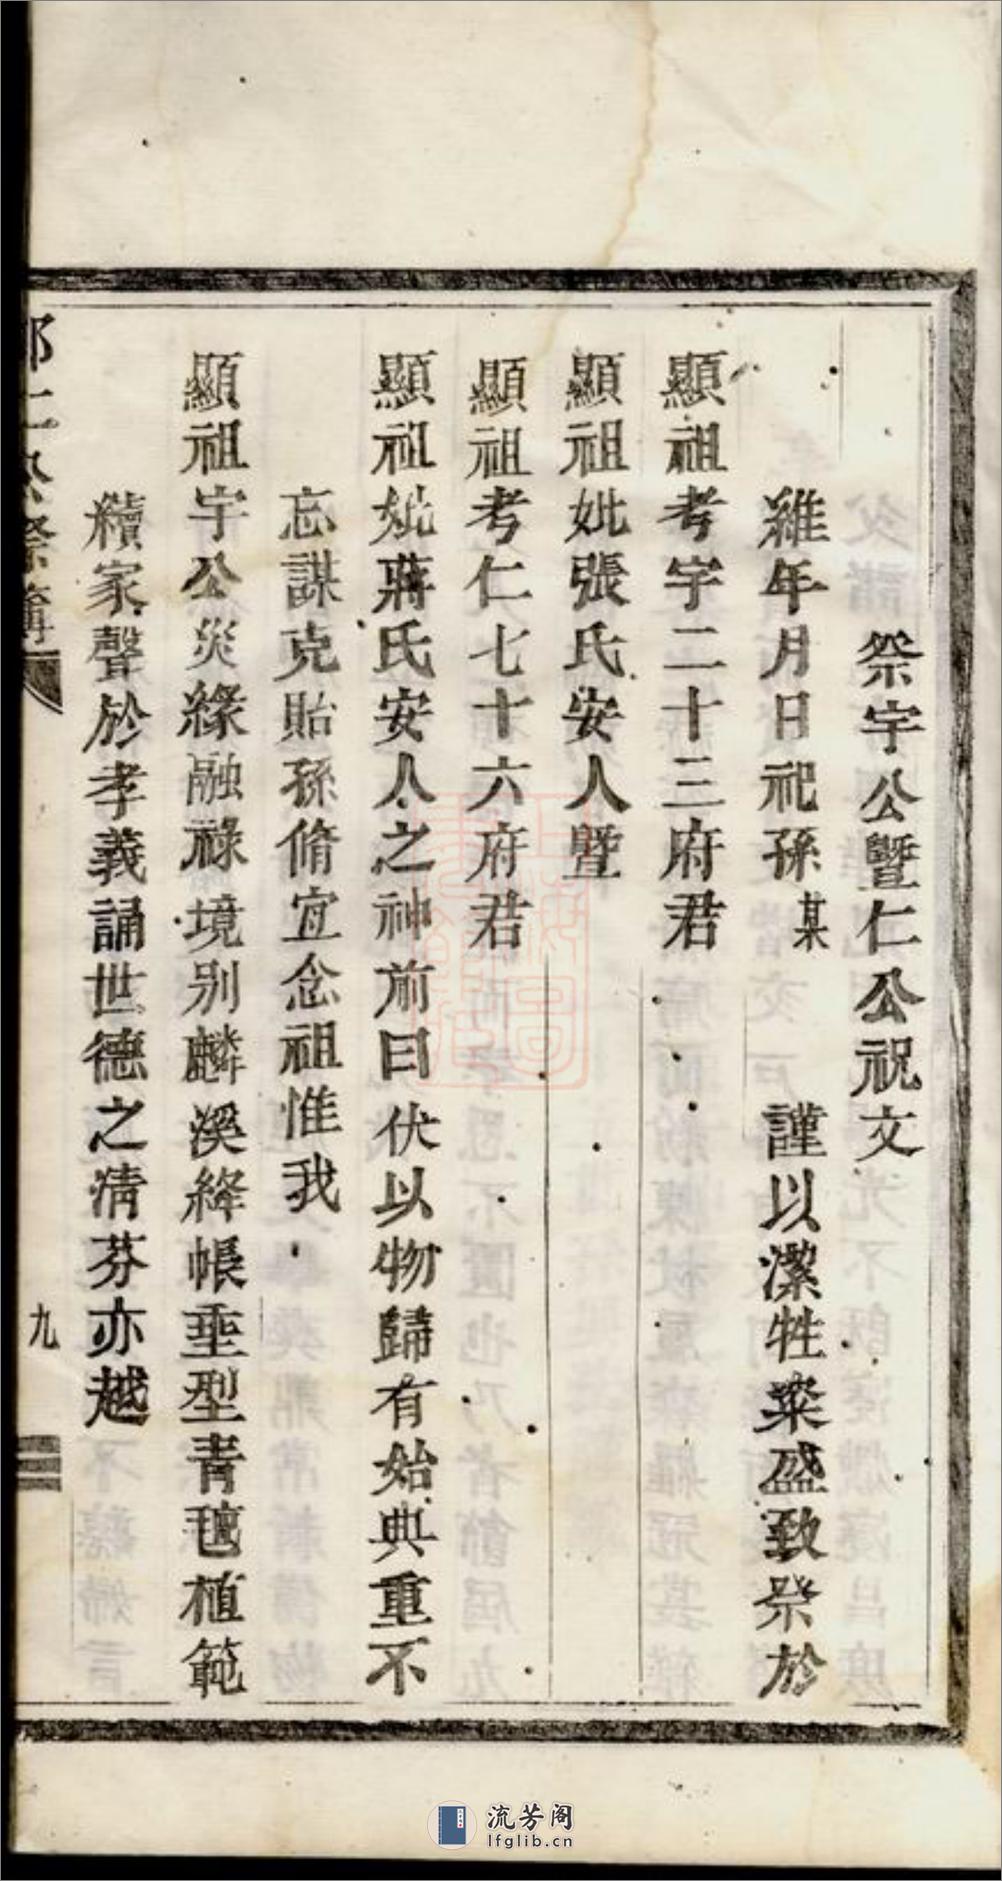 祭宇公暨仁公祝文
維年月日祀孫某 謹以潔牲粢盛致祭於
顯祖考宇二十三府君
顯祖妣張氏安人暨
顯祖考仁七十六府君
顯祖妣蔣氏安人之神前曰伏以物歸有始典重不
忘謀克貽孫脩宜念祖惟我
顯祖宇公災緣融祿境別麟溪絳帳垂型青氊植範
續家聲於孝義誦世德之清芬亦越
祭簿
九
流芳阁
lfglib.cn